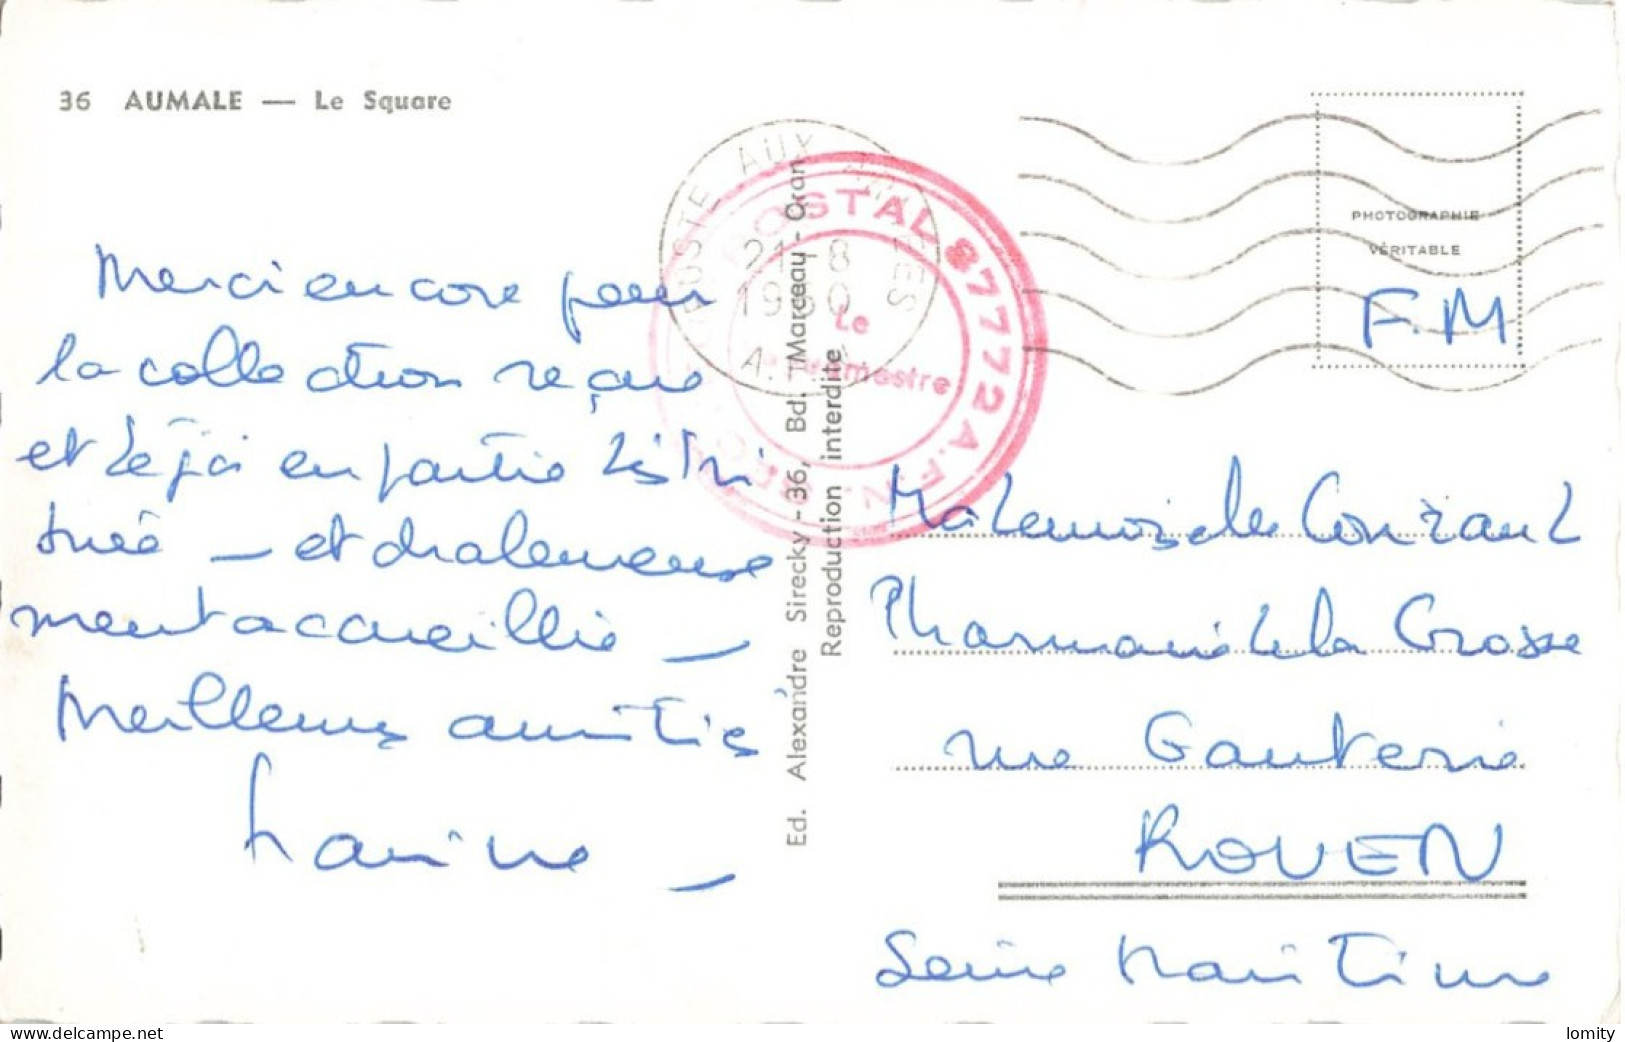 36 AUMALE — Le Square
Merci encore pour
la collection reçue
et déjà en partie distri
buée — et chaleureuse
ment accueillie —
Meilleures amitiés
POSTE AUX ARMÉES
21-8
1960
A.F.N
POSTAL 87772 A.F.N.
Le
Vaguemestre
Ed. Alexandre Sirecky - 36, Bd. Marceau - Oran
Reproduction interdite
PHOTOGRAPHIE
VÉRITABLE
F.M
Mademoiselle
Pharmacie de la Crosse
rue Ganterie
ROUEN
Seine Maritime
www.delcampe.net
lomity